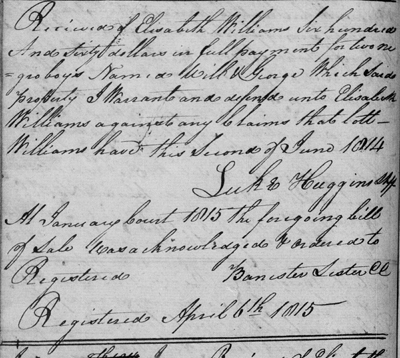 Recieved of Elisabeth Williams Six hundred
And Sixty dollars in full payment for two ne
=groboys Named Will & George Which Said
Property I Warrant and defend unto Elisabeth
Williams against any Claims that Cott-
Williams hath this Second of June 1814
Luke Huggins Shff
At January Court 1815 the foregoing bill
of Sale was acknowledged & ordered to
Registered Banister Lester CC
Registered April 6th 1815